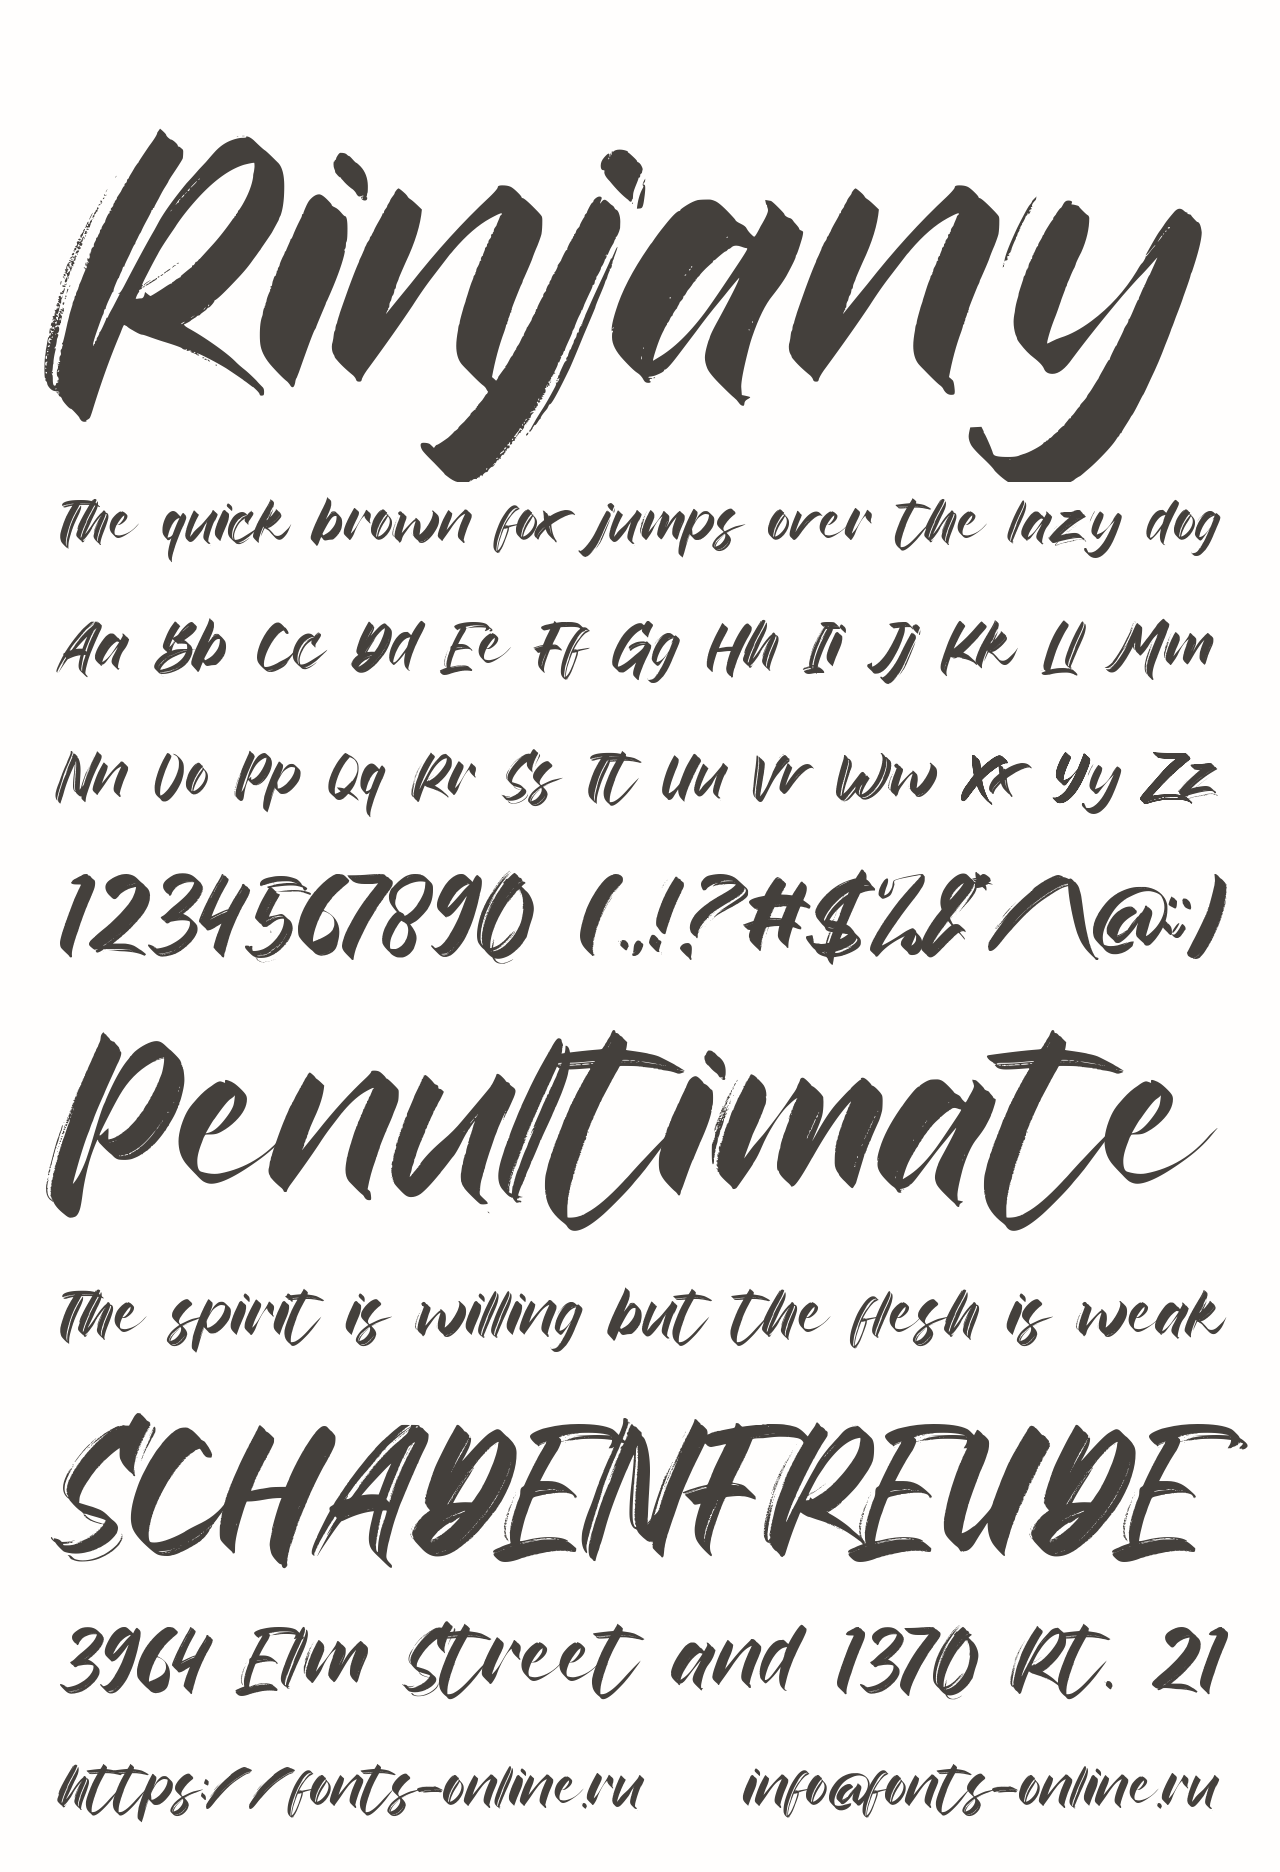 Rinjany
The quick brown fox jumps over the lazy dog
Aa Bb Cc Dd Ee Ff Gg Hh Ii Jj Kk Ll Mm
Nn Oo Pp Qq Rr Ss Tt Uu Vv Ww Xx Yy Zz
1234567890 (.,!?#$%&*/\@:;)
Penultimate
The spirit is willing but the flesh is weak
SCHADENFREUDE
3964 Elm Street and 1370 Rt. 21
https://fonts-online.ru info@fonts-online.ru